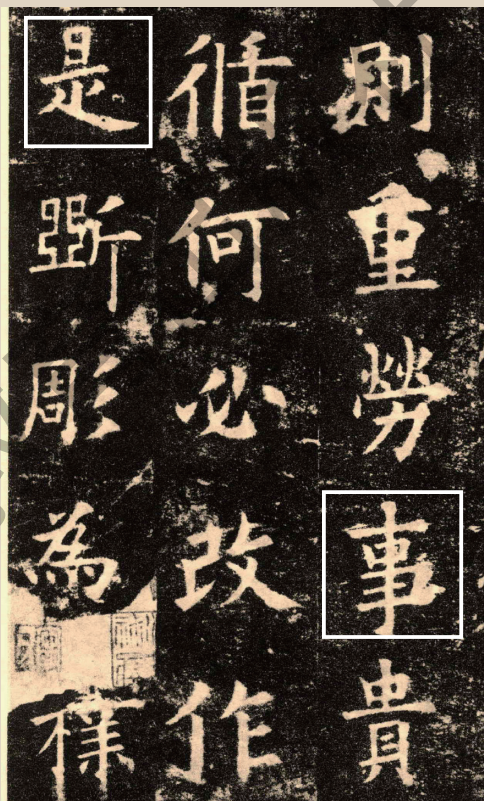 則重勞事貴
循何必改作
是斲彫為樸